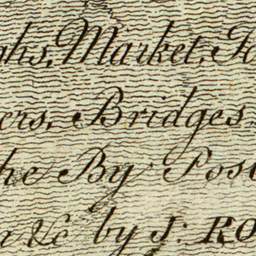 ghs, Market, To
ers, Bridges,
he By Post
&c by J: RO